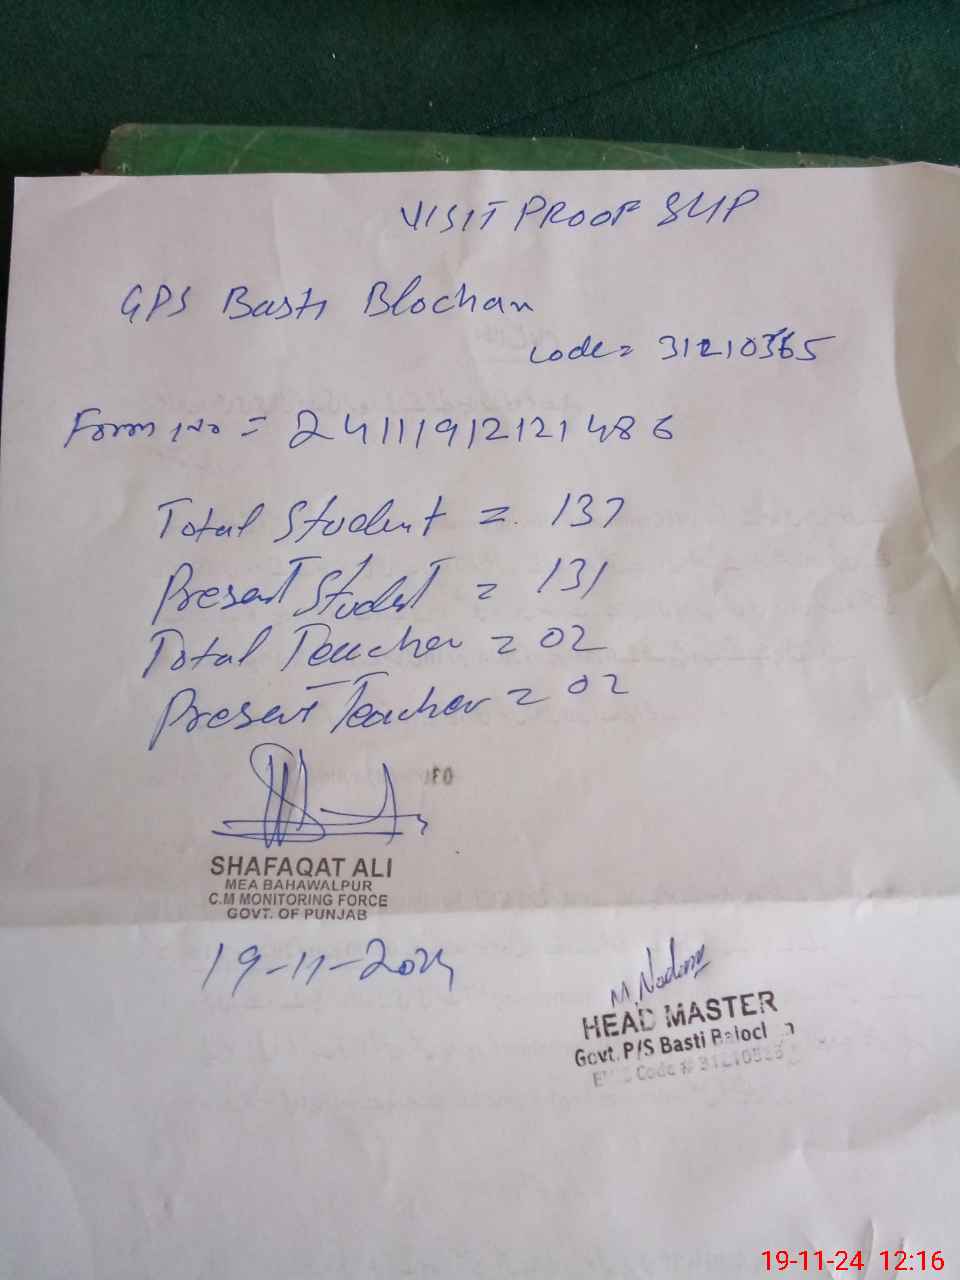 VISIT PROOF SLIP
GPS Basti Blochan
code = 31210365
Form No = 24111912121486
Total Student = 137
Present Student = 131
Total Teacher = 02
Present Teacher = 02
SHAFAQAT ALI
MEA BAHAWALPUR
C.M MONITORING FORCE
GOVT. OF PUNJAB
19-11-2024
M. Nadeem
HEAD MASTER
Govt. P/S Basti
Code #
19-11-24 12:16